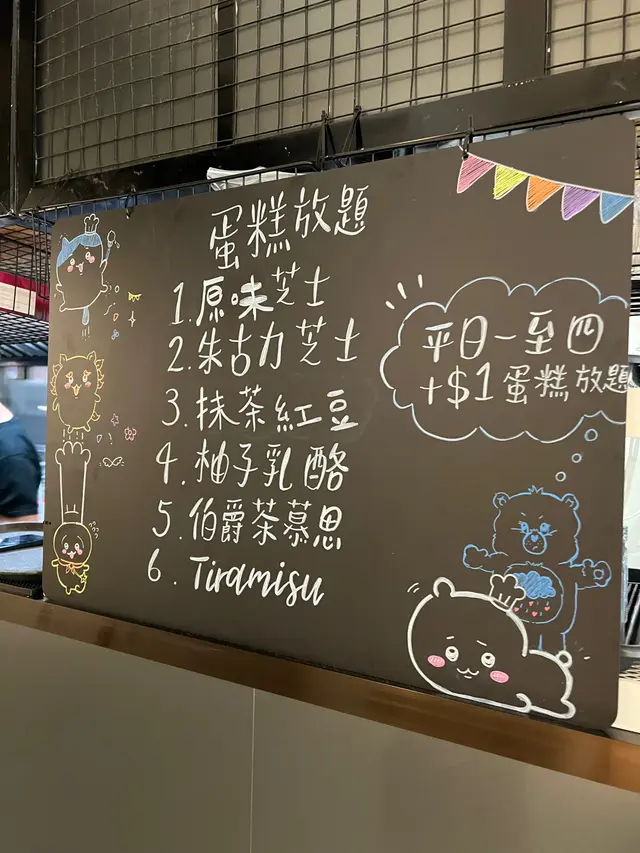 蛋糕放題
1. 原味芝士
2. 朱古力芝士
3. 抹茶紅豆
4. 柚子乳酪
5. 伯爵茶慕思
6. Tiramisu
平日一至四
+$1 蛋糕放題